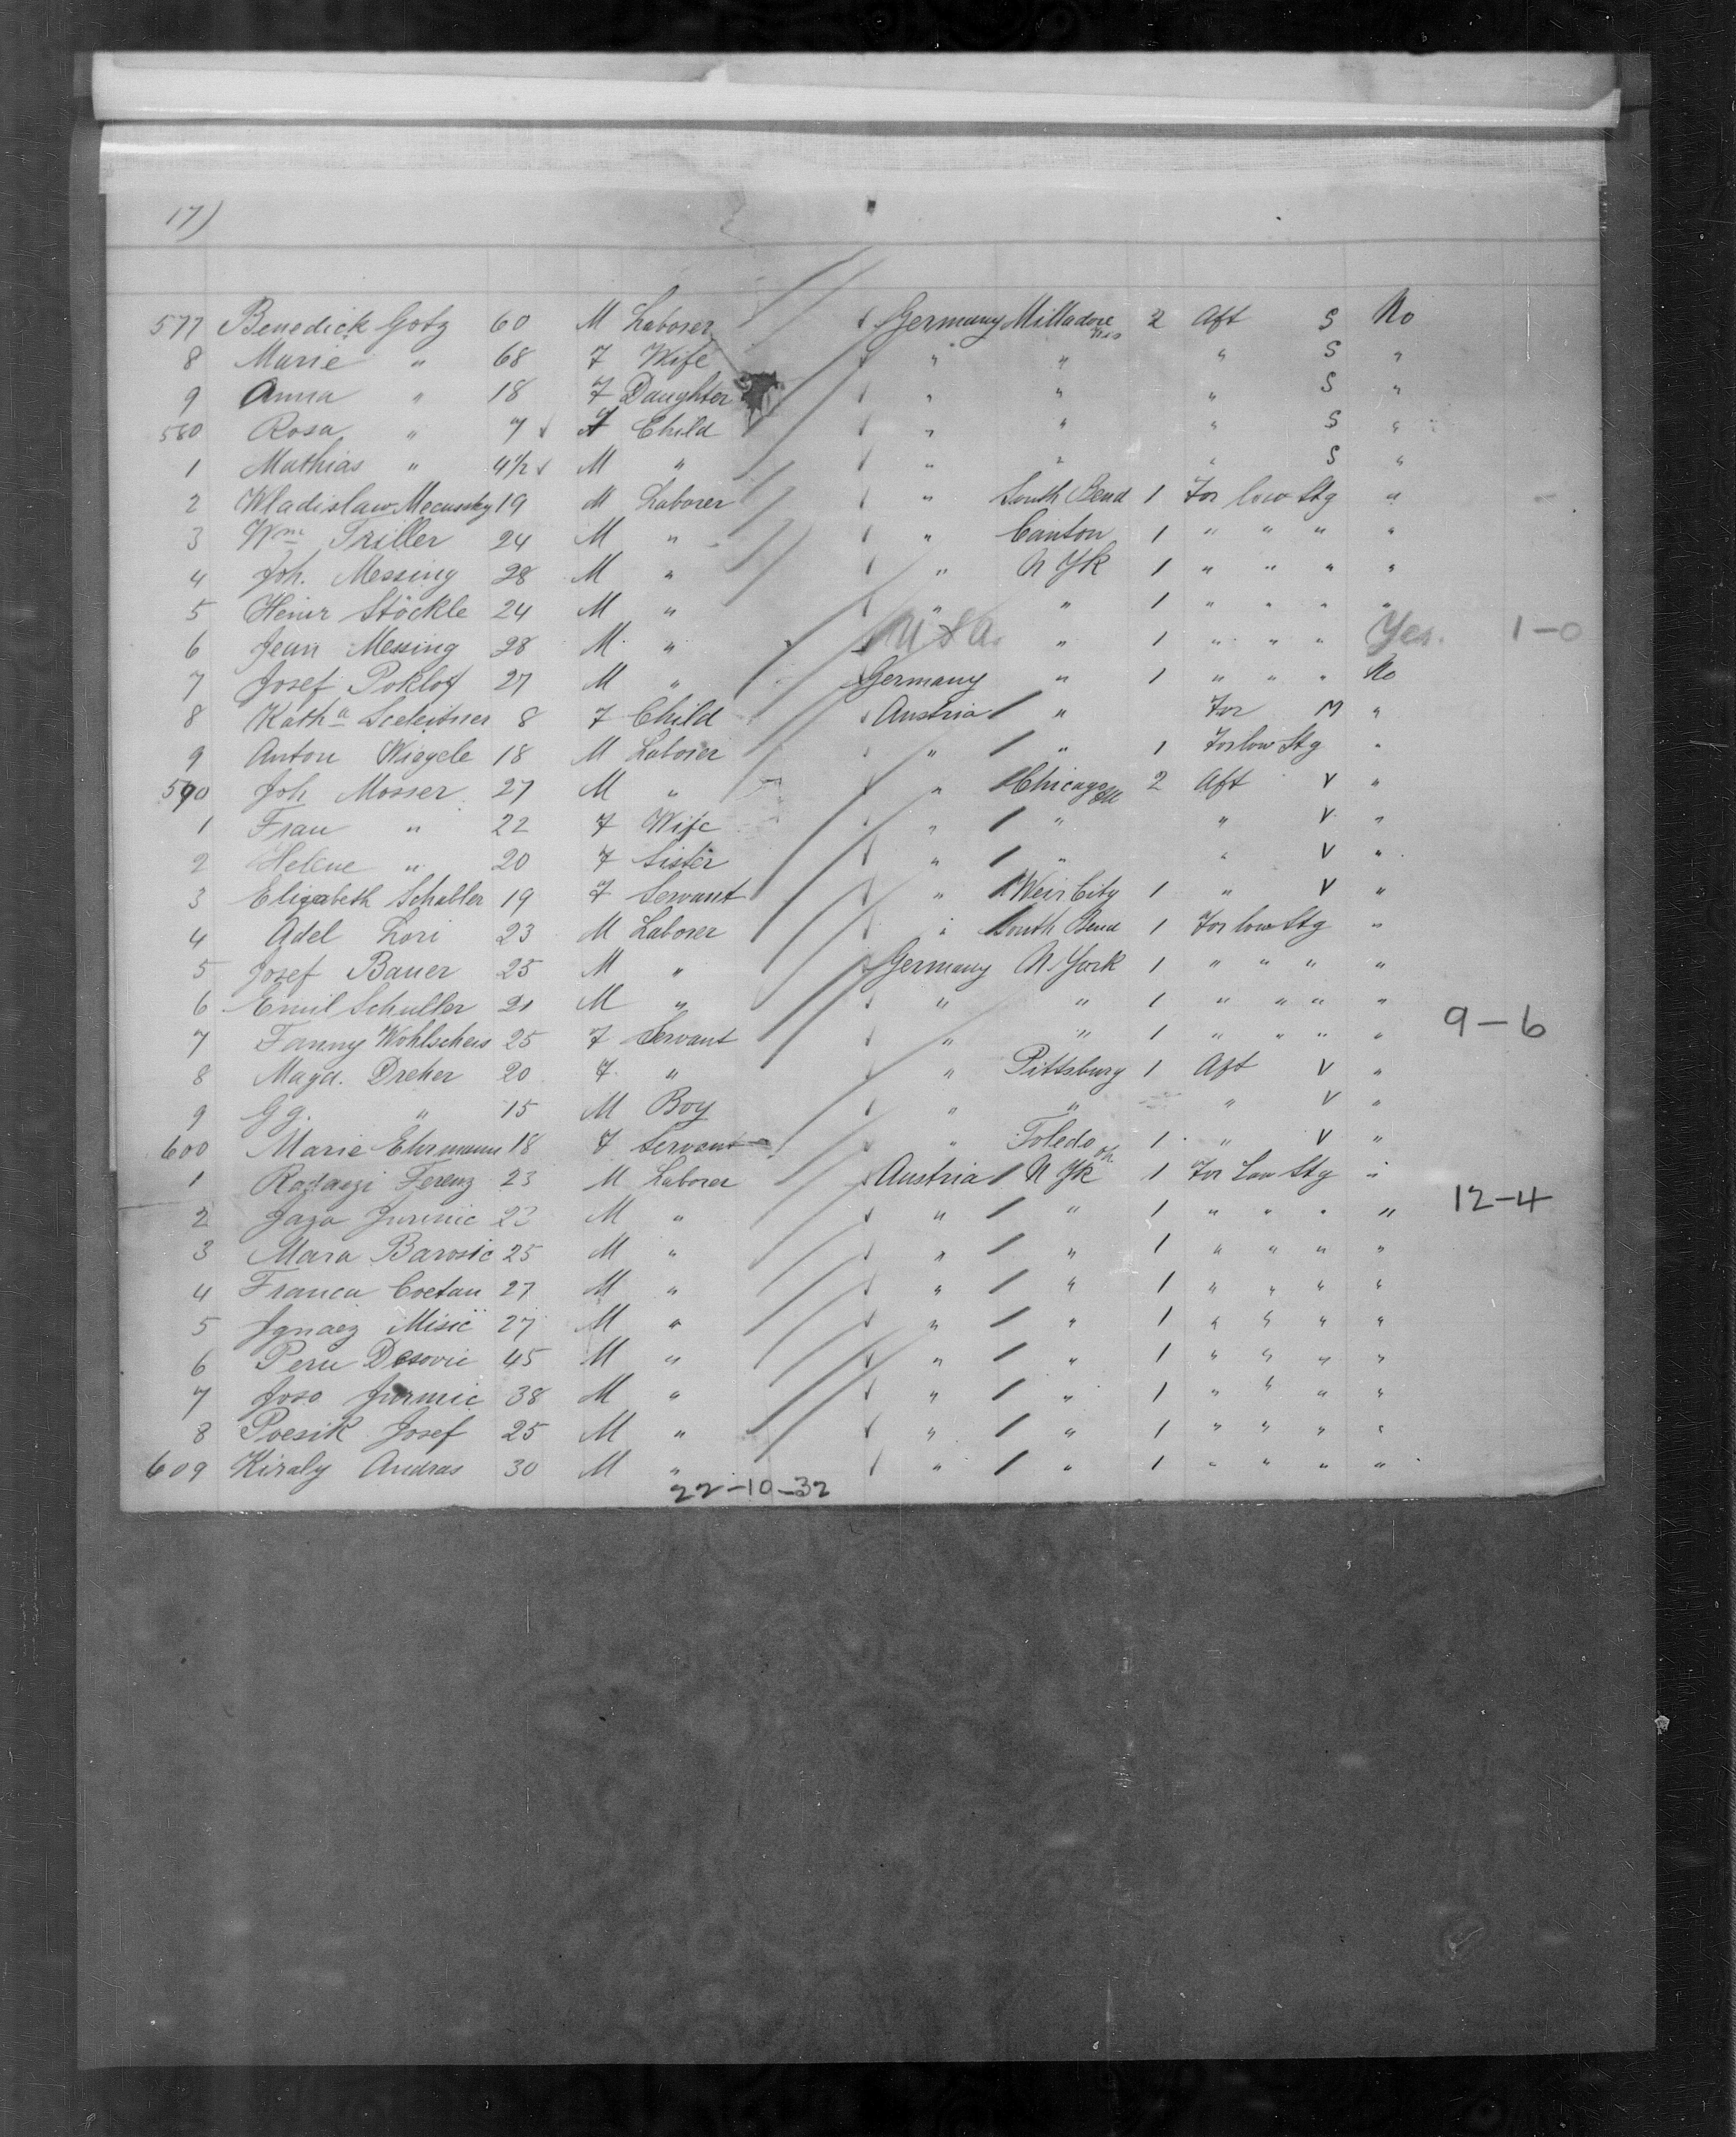 17)
577 Benedick Gotz 60 M Laborer Germany Milladore Wis 2 Aft S No
8 Marie " 68 F Wife " " " S "
9 Anna " 18 F Daughter " " " S "
580 Rosa " 7 F Child " " " S "
1 Mathias " 4½ M " " " " S "
2 Wladislaw 19 M Laborer " South Bend 1 For low Stg "
3 Wm Triller 24 M " " Canton 1 " " " "
4 Joh. Messing 28 M " " N Yk 1 " " " "
5 Heinr Stöckle 24 M " " " 1 " " " "
6 Jean Messing 28 M " USA " 1 " " " Yes. 1-0
7 Josef Poklof 27 M " Germany " 1 " " " No
8 Katha 8 F Child Austria / " For M "
9 Anton Wiegele 18 M Laborer " / " 1 For low Stg "
590 Joh Mosser 27 M " " / Chicago Ill 2 Aft V "
1 Frau " 22 F Wife " / " " V "
2 Helene " 20 F Sister " / " " V "
3 Elizabeth Schaller 19 F Servant " / Weir City 1 " V "
4 Adel Lori 23 M Laborer " / South Bend 1 For low Stg "
5 Josef Bauer 25 M " Germany N. York 1 " " " "
6 Emil Schuller 21 M " " " 1 " " " "
7 Fanny 25 F Servant " " 1 " " " " 9-6
8 Magd. Dreher 20 F " " Pittsburg 1 Aft V "
9 Gg. " 15 M Boy " " " V "
600 Marie Ehrmann 18 F Servant " Toledo Oh 1 " V "
1 Ferenz 23 M Laborer Austria / N Yk 1 For Low Stg "
2 Jaga Jurinic 23 M " " / " 1 " " " " 12-4
3 Mara Barosic 25 M " " / " 1 " " " "
4 Franca Cvetan 27 M " " / " 1 " " " "
5 Ignacz Misic 27 M " " / " 1 " " " "
6 Peru Desovic 45 M " " / " 1 " " " "
7 Joso Jurinic 38 M " " / " 1 " " " "
8 Poesik Josef 25 M " " / " 1 " " " "
609 Kiraly Andras 30 M " " / " 1 " " " "
22-10-32